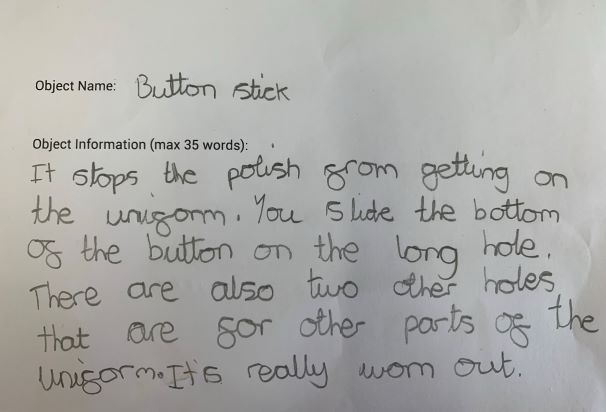 Object Name: Button stick
Object Information (max 35 words):
It stops the polish from getting on
the uniform. You slide the bottom
of the button on the long hole.
There are also two other holes
that are for other parts of the
uniform. It's really worn out.